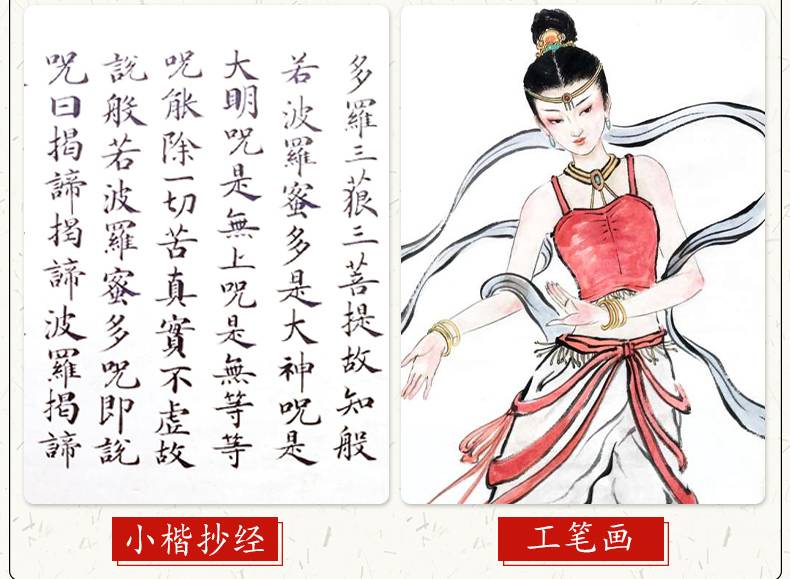 多羅三藐三菩提故知般
若波羅蜜多是大神咒是
大明咒是無上咒是無等等
咒能除一切苦真實不虛故
說般若波羅蜜多咒即說
咒曰揭諦揭諦波羅揭諦
小楷抄经
工笔画